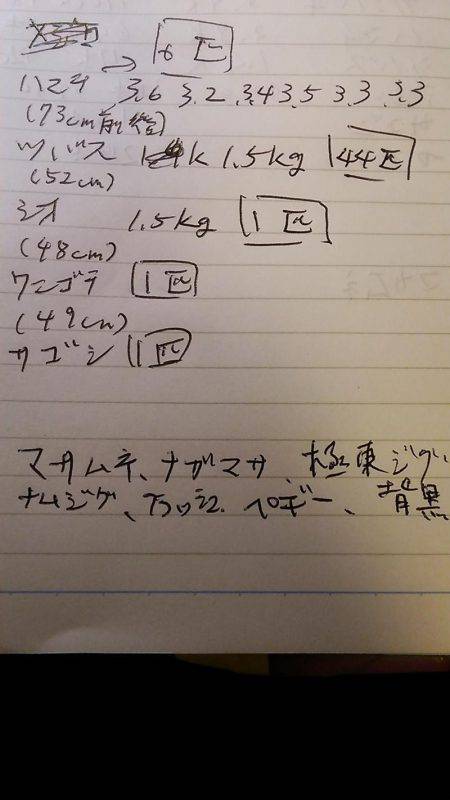 6匹
ハマチ 3.6 3.2 3.4 3.5 3.3 3.3
(73cm前後)
ツバス 1.5kg 44匹
(52cm)
1.5kg 1匹
(48cm)
ワニゴチ 1匹
(49cm)
サゴシ 1匹
マサムネ、ナガマサ、極東ジグ
ナムジグ、 ペギー、背黒